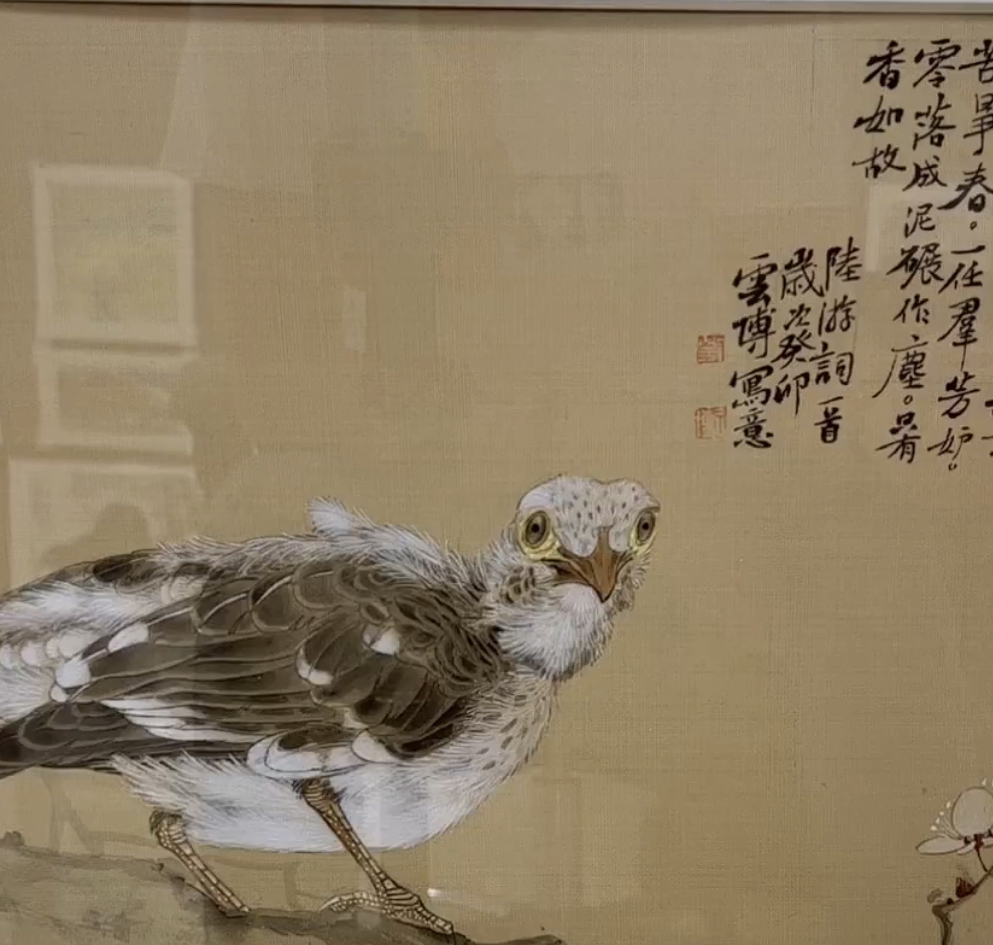 苦爭春。一任羣芳妒。
零落成泥碾作塵。只有
香如故
陸游詞一首
歲次癸卯
雲博寫意